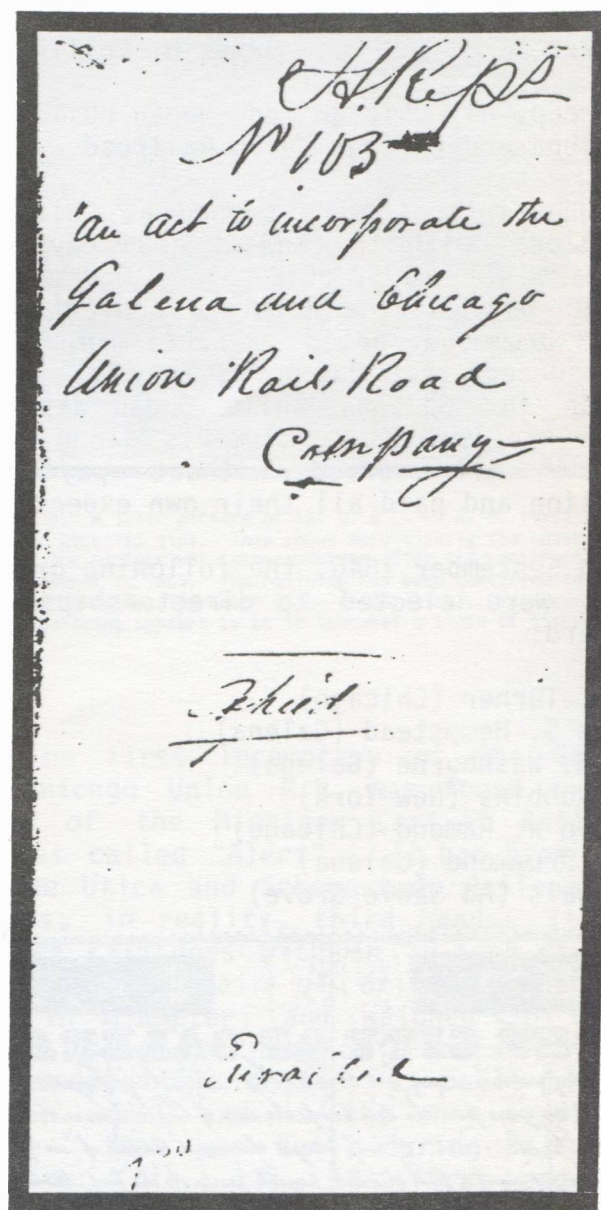 H. Reps
No 103
"an act to incorporate the
Galena and Chicago
Union Rail Road
Company
Enrolled